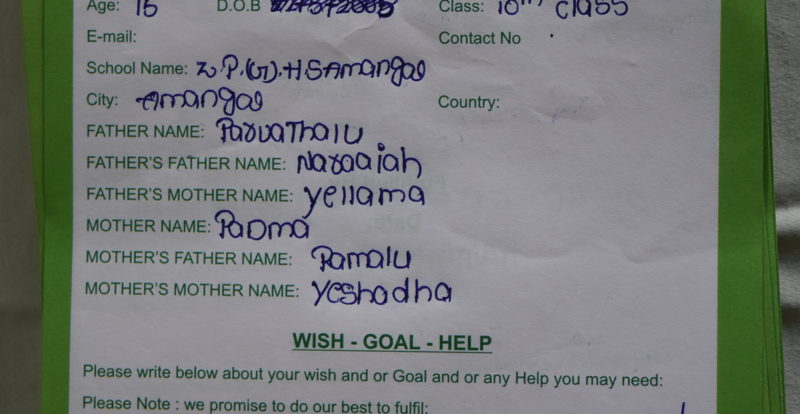 Age: 15 D.O.B Class: 10th class
E-mail: Contact No
School Name: Z.P.(G).H.S Amangal
City: Amangal Country:
FATHER NAME: ParvaThalu
FATHER'S FATHER NAME: Naraaiah
FATHER'S MOTHER NAME: yellama
MOTHER NAME: PaDma
MOTHER'S FATHER NAME: Ramalu
MOTHER'S MOTHER NAME: Yeshadha
WISH - GOAL - HELP
Please write below about your wish and or Goal and or any Help you may need:
Please Note : we promise to do our best to fulfil: